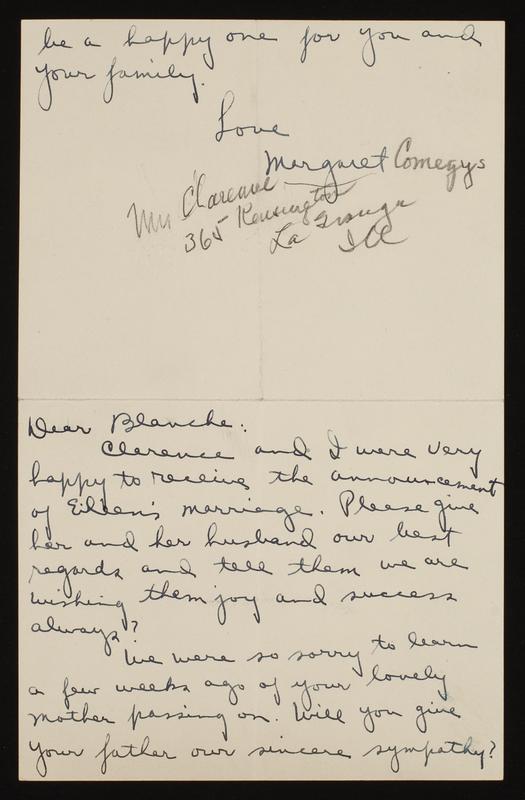 be a happy one for you and
your family.
Love
Margaret Comegys
Mrs Clarence
365 Kensington
La Grange
Ill
Dear Blanche:
Clarence and I were very
happy to receive the announcement
of Eileen's marriage. Please give
her and her husband our best
regards and tell them we are
wishing them joy and success
always?
We were so sorry to learn
a few weeks ago of your lovely
mother passing on. Will you give
your father our sincere sympathy?